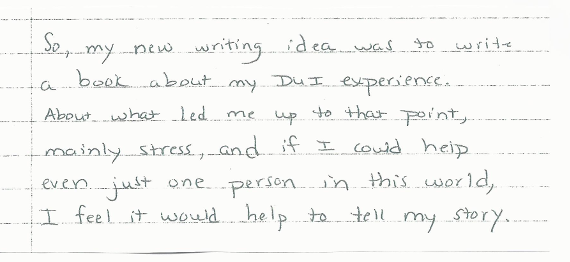 So, my new writing idea was to write
a book about my DUI experience.
About what led me up to that point,
mainly stress, and if I could help
even just one person in this world,
I feel it would help to tell my story.